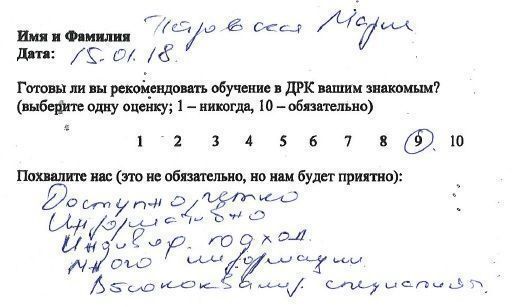 Имя и Фамилия Петровская Мария
Дата: 15.01.18.
Готовы ли вы рекомендовать обучение в ДРК вашим знакомым?
(выберите одну оценку; 1 – никогда, 10 – обязательно)
1 2 3 4 5 6 7 8 9 10
Похвалите нас (это не обязательно, но нам будет приятно):
Доступно, четко
Информативно
Индивид. подход.
Много информации.
Высококвалиф. специалисты.